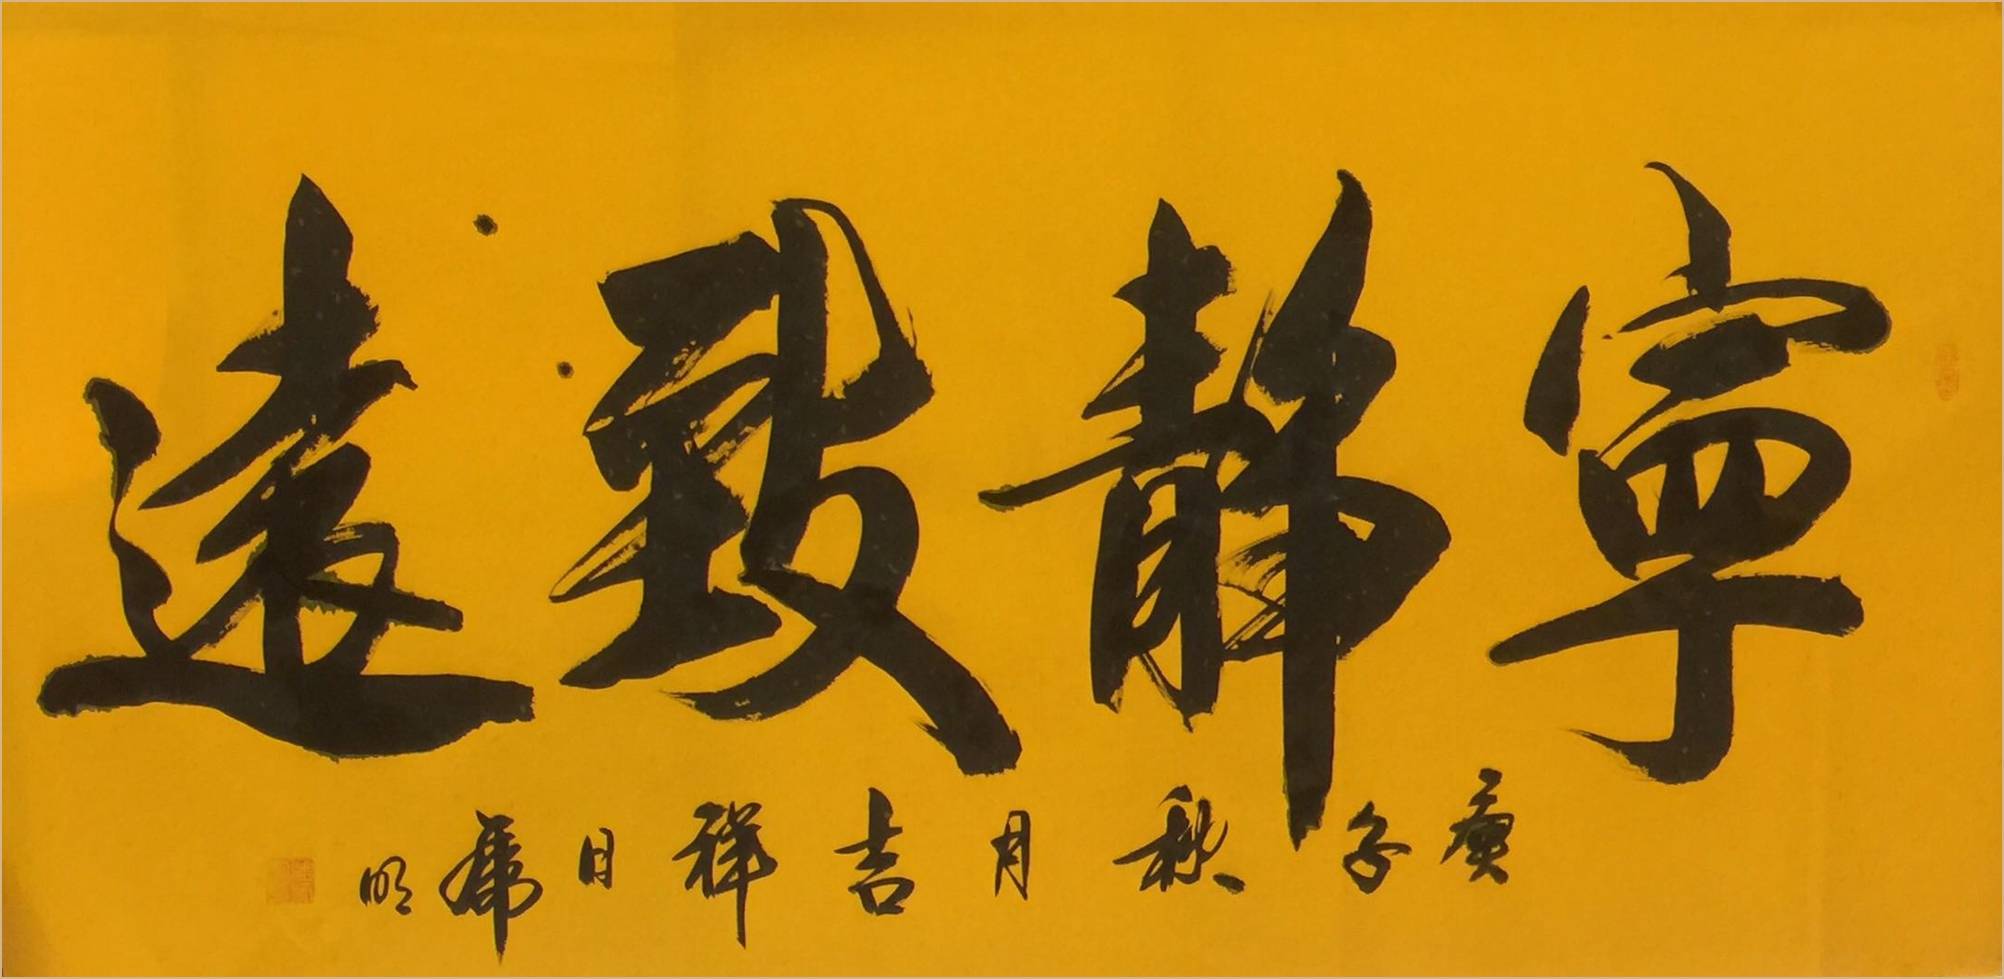 寧靜致遠
庚子秋月吉祥日明